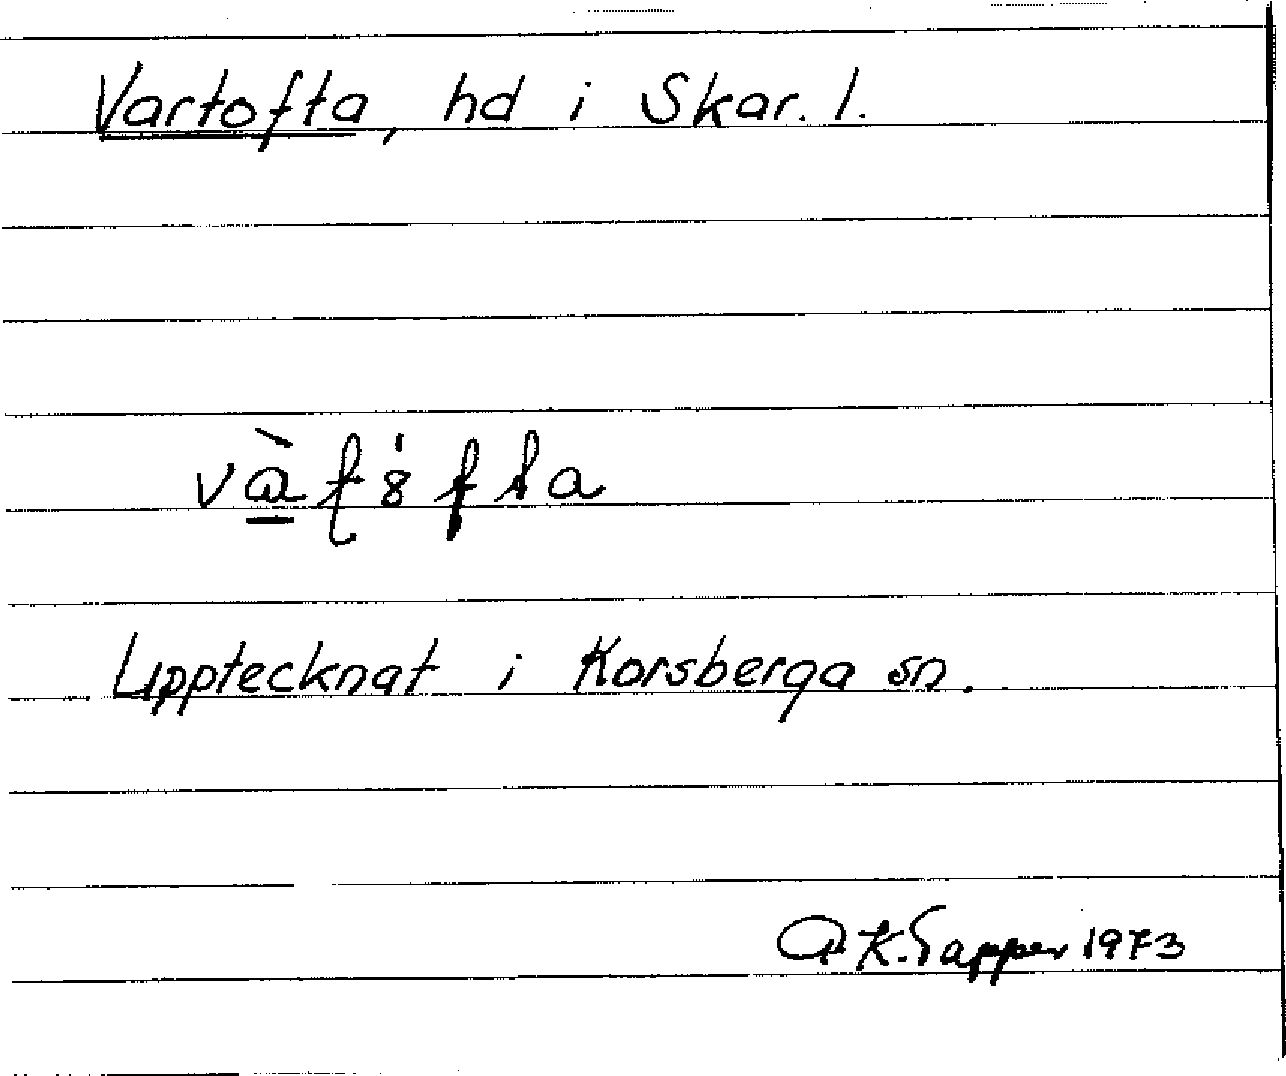 Vartofta, hd i Skar. l.
Upptecknat i Korsberga sn.
A K. Sapper 1973